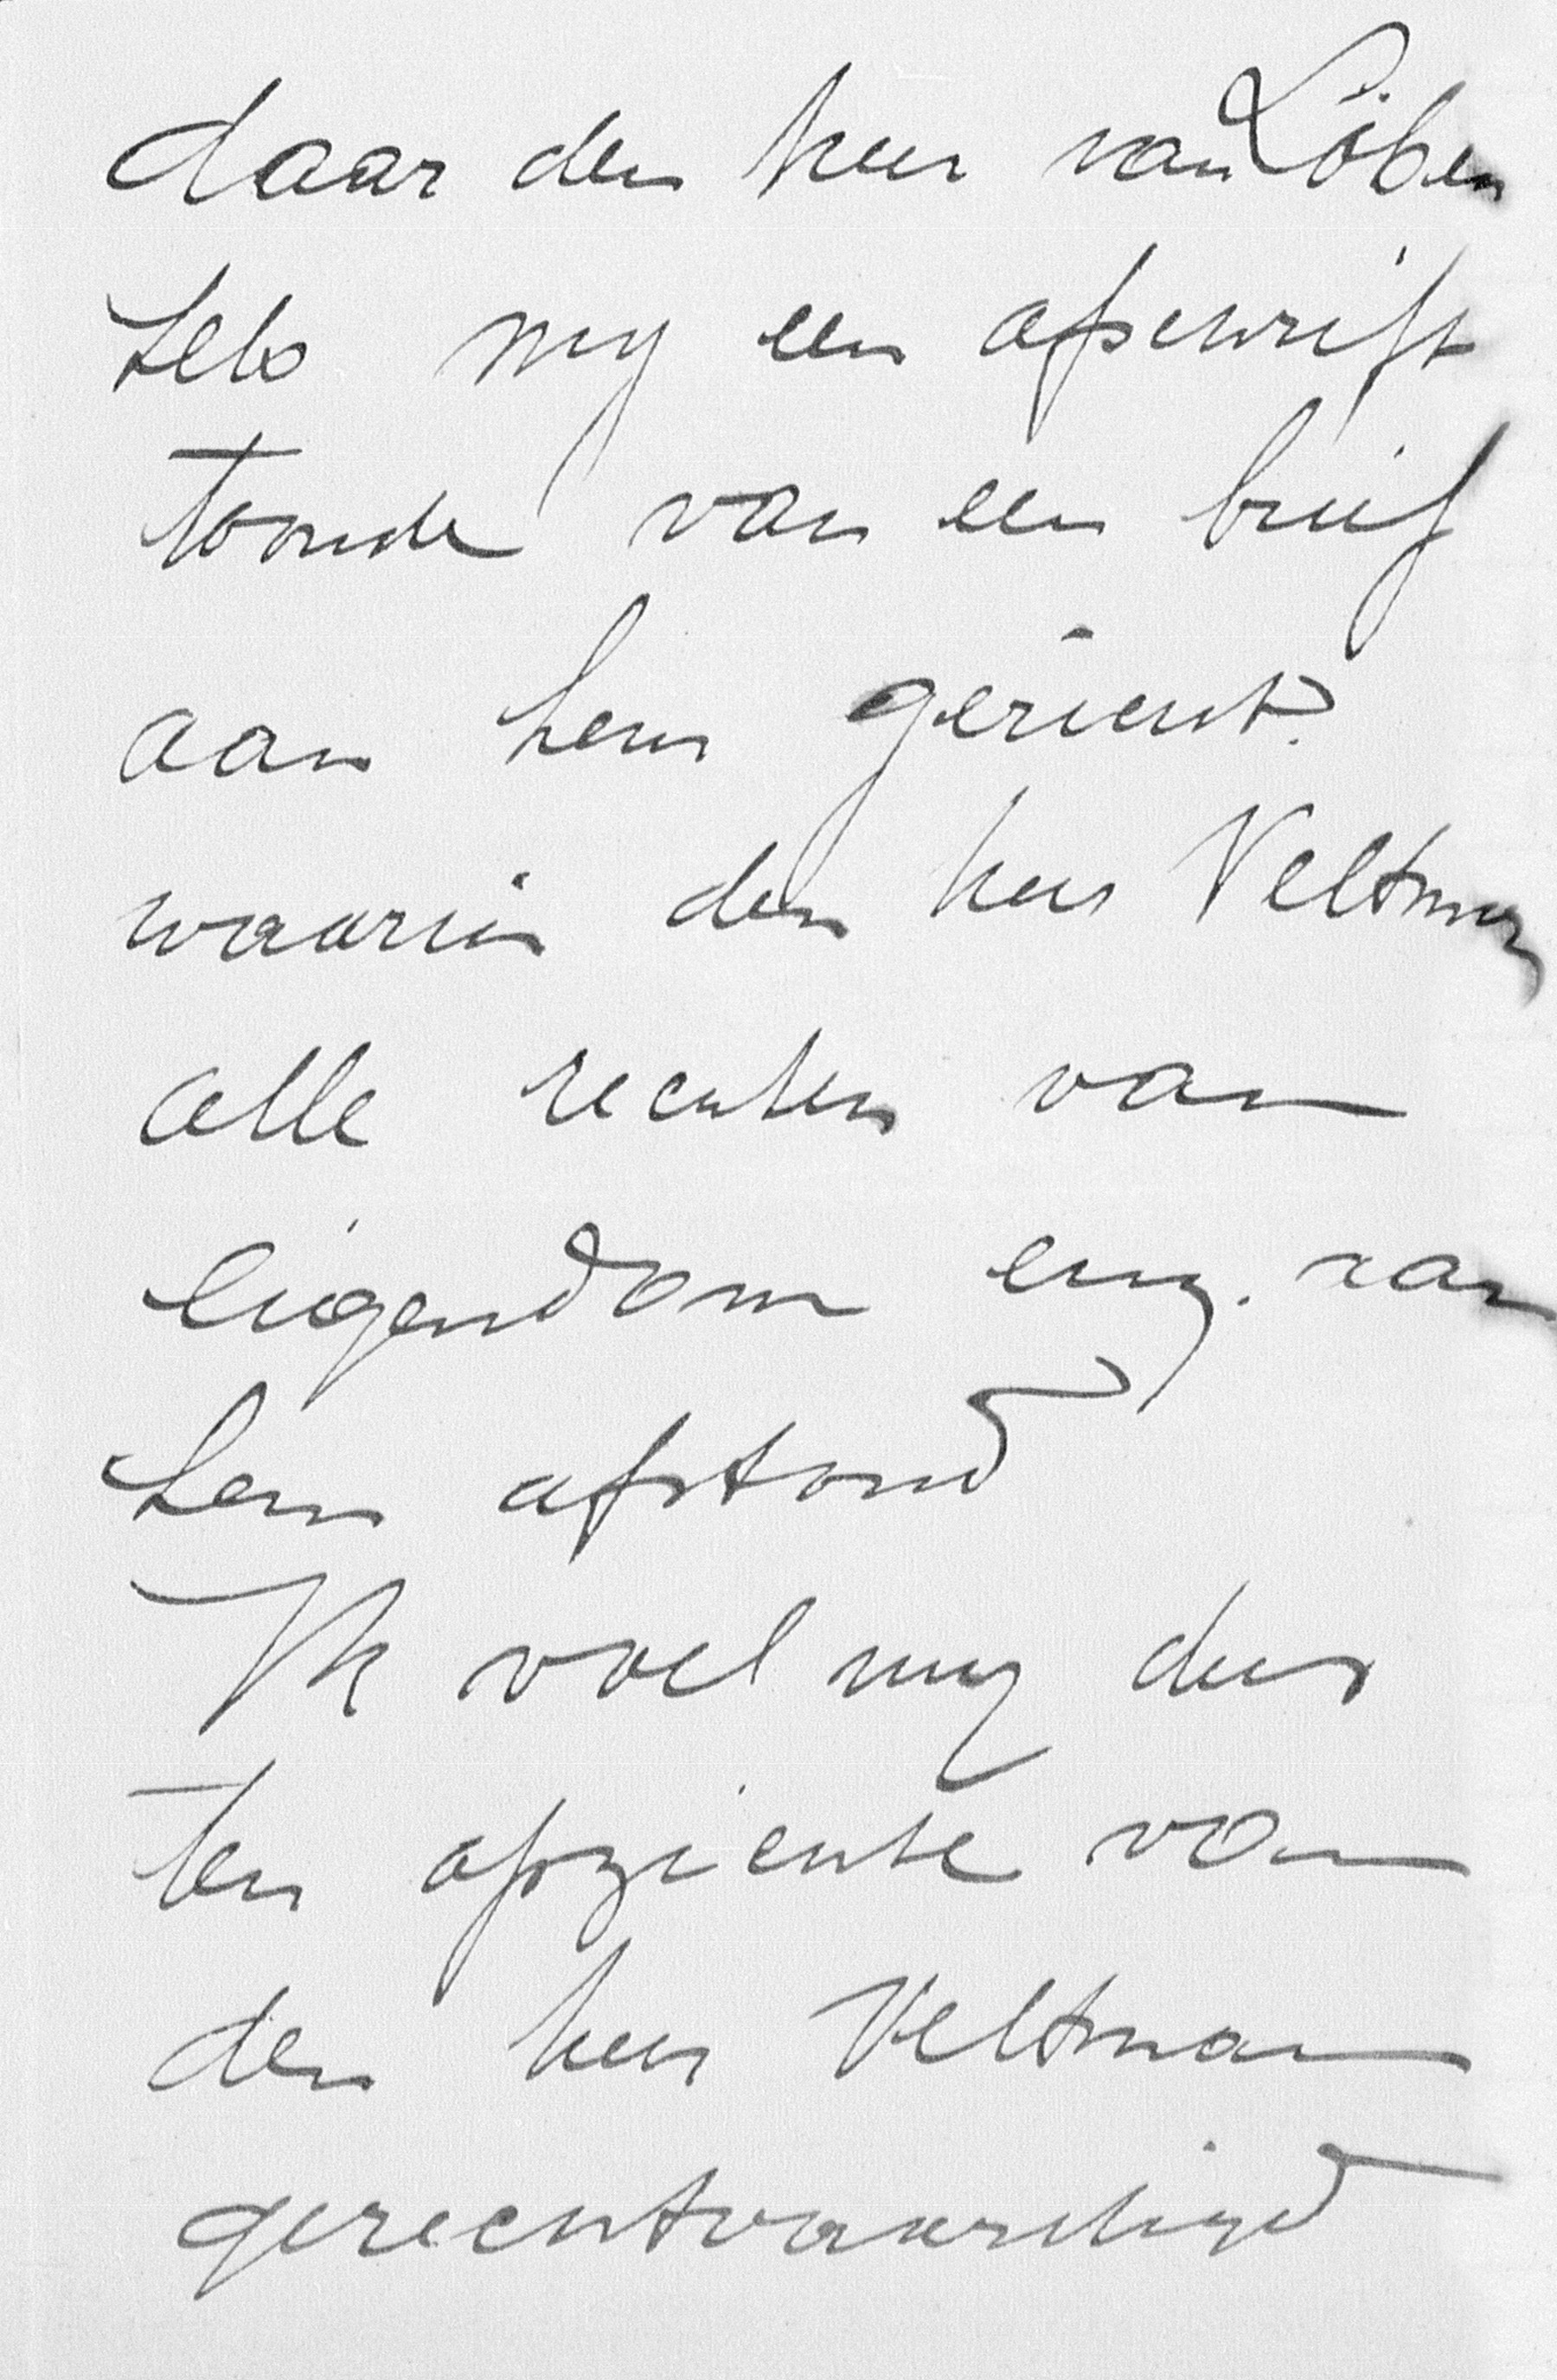 daar den heer van Löben
Sels my een afschrift
toonde van een brief
aan hem gericht.
waarin den heer Veltman
alle rechten van
eigendom enz. aan
hem afstond
Ik voel my dus
ten opzichte van
den heer Veltman
gerechtvaardigd